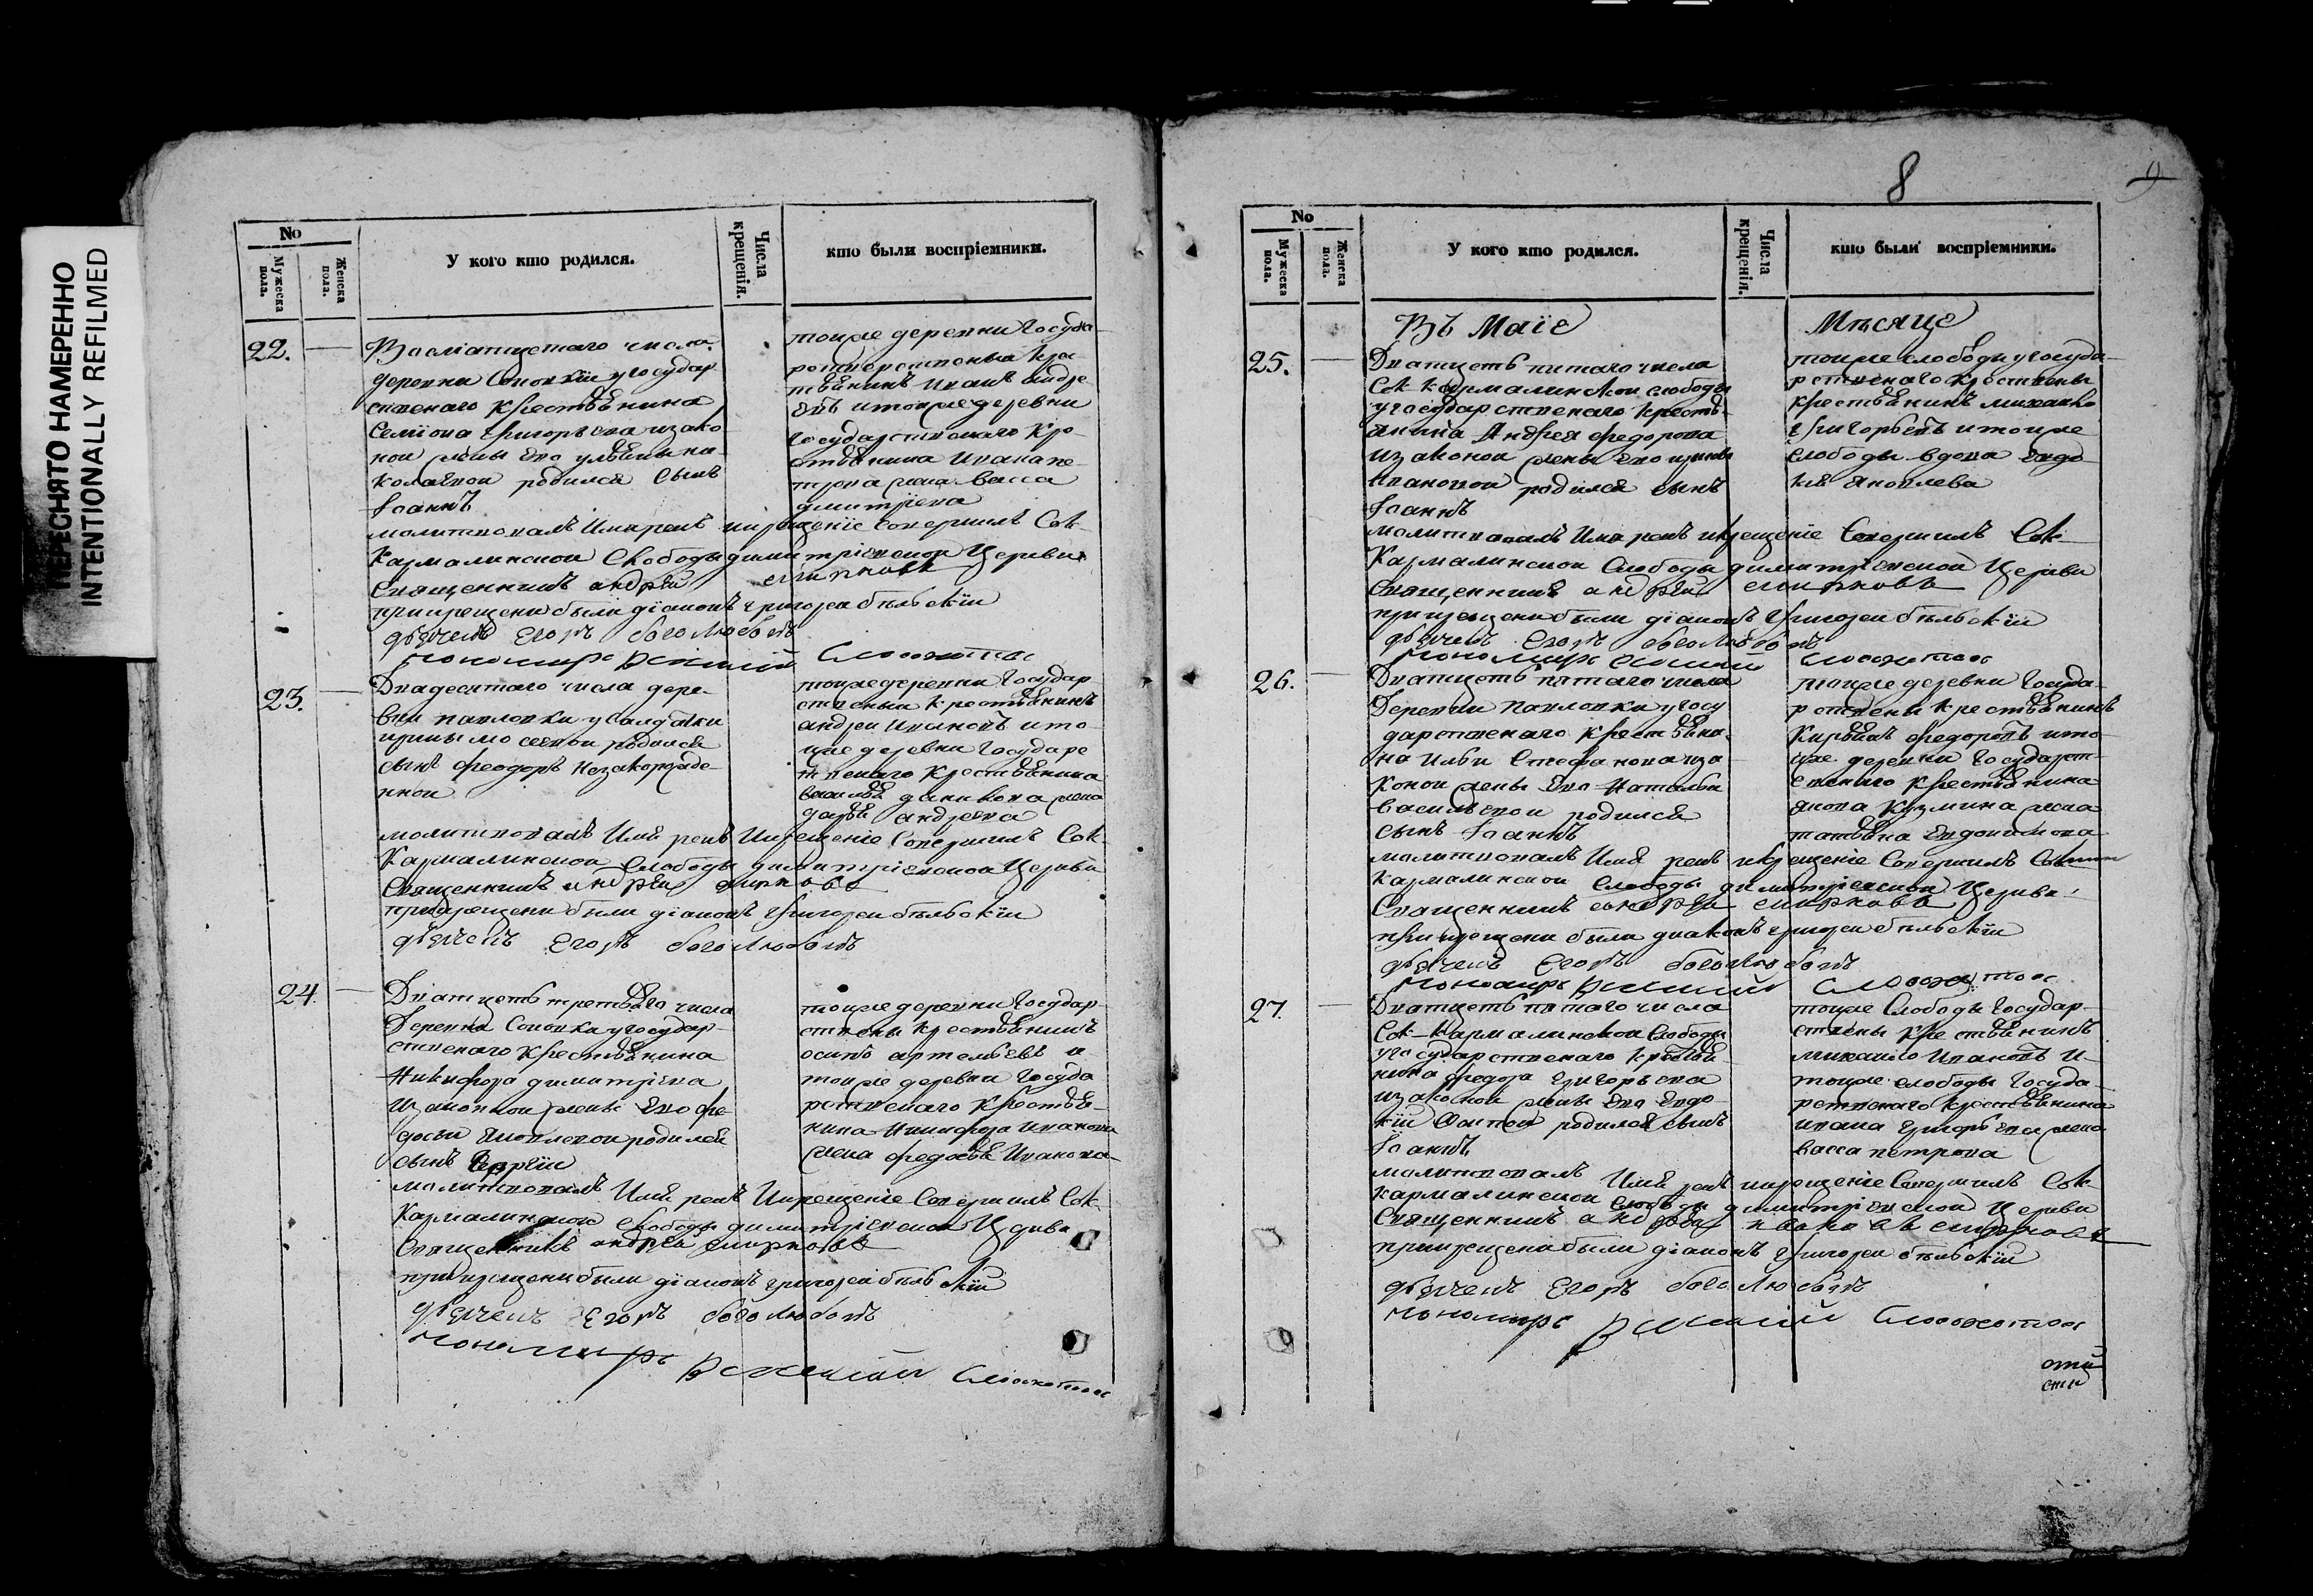 ПЕРЕСНЯТО НАМЕРЕННО
INTENTIONALLY REFILMED
No
Мужеска пола.
Женска пола.
У кого кто родился.
Числа крещенія.
кто были воспріемники.
22.
числа
деревни у государ
ственаго крестьянина
Семіона Григорьева изако
ной жены его ульяны ни
колаевой родился сынъ
Іоаннъ
тойже деревни Госуда
рственый кре
стьянинъ Иванъ андре
евъ итойже деревни
Государственаго кре
стьянина Ивана пе
трова жена васса
дмитріева
молитвовалъ Имя рекъ икрещеніе совершилъ Сок
Кармалинской Слободы димитріевской Церкви
Священникъ андрей смирновъ
прикрещени были діаконъ григорей бѣльскій
дьячекъ Егоръ боголюбовъ
пономарь
23.
Двадесятаго числа дере
вни павловки у салдатки
ирины родился
сынъ феодоръ незаконорожде
нной
тойже деревни Государ
ственый крестьянинъ
андрей Ивановъ ито
йже деревни Государс
твенаго крестьянина
василья данилова жена
дарья андреева
молитвовалъ Имя рекъ Икрещеніе Совершилъ Сок
Кармалинской Слободы димитріевской Церкви
Священникъ андрей смирновъ
прикрещени были діаконъ григорей бѣльскій
дьячекъ Егоръ боголюбовъ
24.
Дватцеть третьяго числа
Деревни Соновка у государ
ственаго крестьянина
Никифора димитріева
изаконной жены Его фе
досьи Яковлевой родился
сынъ
тойже деревни Государ
ствены крестьянинъ
осипъ артемьевъ и
тойже деревни Госуда
рственаго крестья
нина Никифора иванова
жена федосья Иванова
молитвовалъ Имя рекъ Икрещеніе Совершилъ Сок
Кармалинской Слободы димитріевской Церкви
Священникъ андрей смирновъ
прикрещени были діаконъ григорей бѣльскій
дьячекъ Егоръ боголюбовъ
пономарь
8
9
No
Мужеска пола.
Женска пола.
У кого кто родился.
Числа крещенія.
кто были воспріемники.
Въ Маіе Мѣсяце
25.
Дватцеть пятаго числа
Сок Кармалинской слободы
у государственаго кресть
янина Андрея федорова
изаконой жены Его ирины
ивановой родился сынъ
Іоаннъ
тойже слободы у госуда
рственаго крестьяны
крестьянинъ михаило
григорьевъ итойже
слободы вдова евдо
кія яковлева
молитвовалъ Имя рекъ икрещеніе Совершилъ Сок
Кармалинской Слободы димитріевской Церкви
Священникъ андрей смирновъ
прикрещени были діаконъ григорей бѣльскій
дьячекъ Егоръ боголюбовъ
пономарь
26.
Дватцеть пятаго числа
Деревни Павловки у госу
дарственаго крестьяни
на Ильи Стефанова иза
коной жены Его Натальи
васильевой родился
сынъ Іоаннъ
тойже деревни Госуда
рствены крестьянинъ
федоровъ ито
йже деревни Государст
венаго крестьянина
якова кузмина жена
татьяна евдокимова
молитвовалъ Имя рекъ икрещеніе Совершилъ
Кармалинской Слободы димитріевской Церкви
Священникъ андрей смирновъ
прикрещени были диаконъ григорей бѣльскій
дьячекъ Егоръ боголюбовъ
пономарь
27.
Дватцеть пятаго числа
Сок Кармалинской Слободы
у государственаго крестья
нина федора григорьева
изаконой жены Его Евдо
кіи родился сынъ
Іоаннъ
тойже Слободы Государ
ствены крестьянинъ
михаило Ивановъ и
тойже слободы Госуда
рственаго крестьянина
ивана григорьева жена
васса петрова
молитвовалъ Имя рекъ икрещеніе Совершилъ Сок
Кармалинской слободы димитріевской Церкви
Священникъ андрей смирновъ
прикрещени были діаконъ григорей бѣльскій
дьячекъ Егоръ боголюбовъ
пономарь